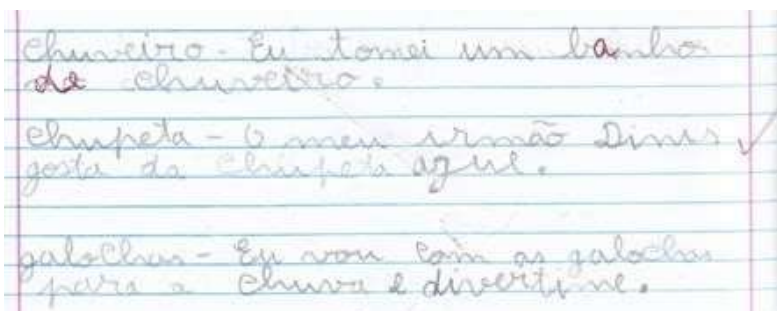 chuveiro - Eu tomei um banho
de chuveiro.
chupeta - O meu irmão Dinis
gosta da chupeta azul.
galochas - Eu vou com as galochas
para a chuva e divertime.